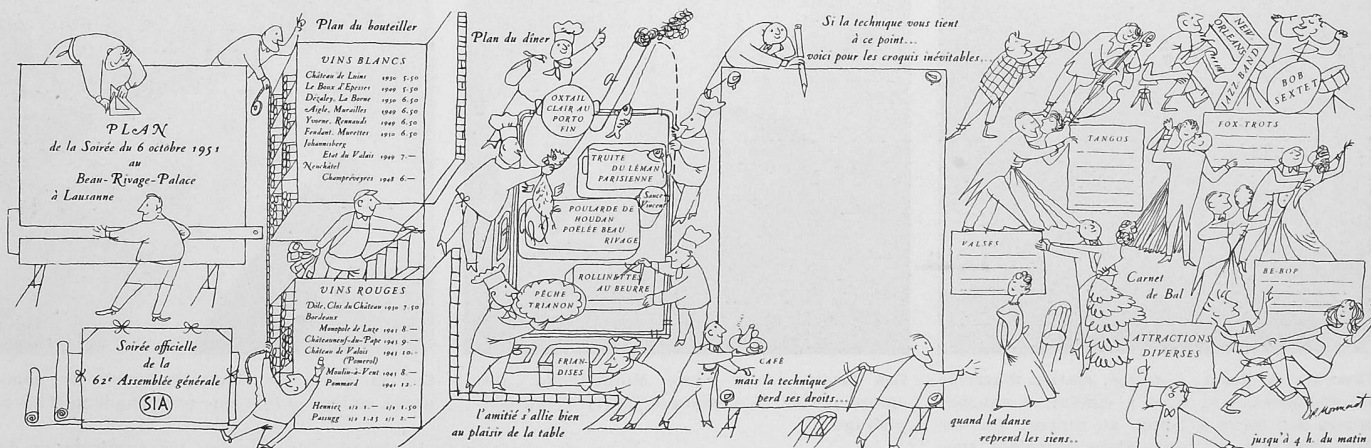 PLAN
de la Soirée du 6 octobre 1951
au
Beau-Rivage-Palace
à Lausanne
Soirée officielle
de la
62e Assemblée générale
SIA
Plan du bouteiller
VINS BLANCS
Château de Luins 1950 5.50
Le Boux d'Epesses 1949 5.50
Dézaley, La Borne 1950 6.50
Aigle, Murailles 1949 6.50
Yvorne, Rennauds 1949 6.50
Fendant, Murettes 1950 6.50
Johannisberg
Etat du Valais 1949 7.—
Neuchâtel
Champréveyres 1948 6.—
VINS ROUGES
Dôle, Clos du Château 1950 7.50
Bordeaux
Monopole de Luze 1945 8.—
Châteauneuf-du-Pape 1945 9.—
Château de Valois 1945 10.—
(Pomerol)
Moulin-à-Vent 1945 8.—
Pommard 1945 12.—
Henniez 1/2 1.— 1/1 1.50
Passugg 1/2 1.25 1/1 2.—
Plan du dîner
OXTAIL
CLAIR AU
PORTO
FIN
TRUITE
DU LÉMAN
PARISIENNE
Sauce
Vincent
POULARDE DE
HOUDAN
POËLÉE BEAU
RIVAGE
ROLLINETTES
AU BEURRE
PÊCHE
TRIANON
FRIAN-
DISES
CAFÉ
l'amitié s'allie bien
au plaisir de la table
Si la technique vous tient
à ce point...
voici pour les croquis inévitables...
mais la technique
perd ses droits...
NEW
ORLEANS
JAZZ BAND
BOB
SEXTET
TANGOS
FOX-TROTS
VALSES
Carnet
de Bal
BE-BOP
ATTRACTIONS
DIVERSES
quand la danse
reprend les siens..
jusqu'à 4 h. du matin